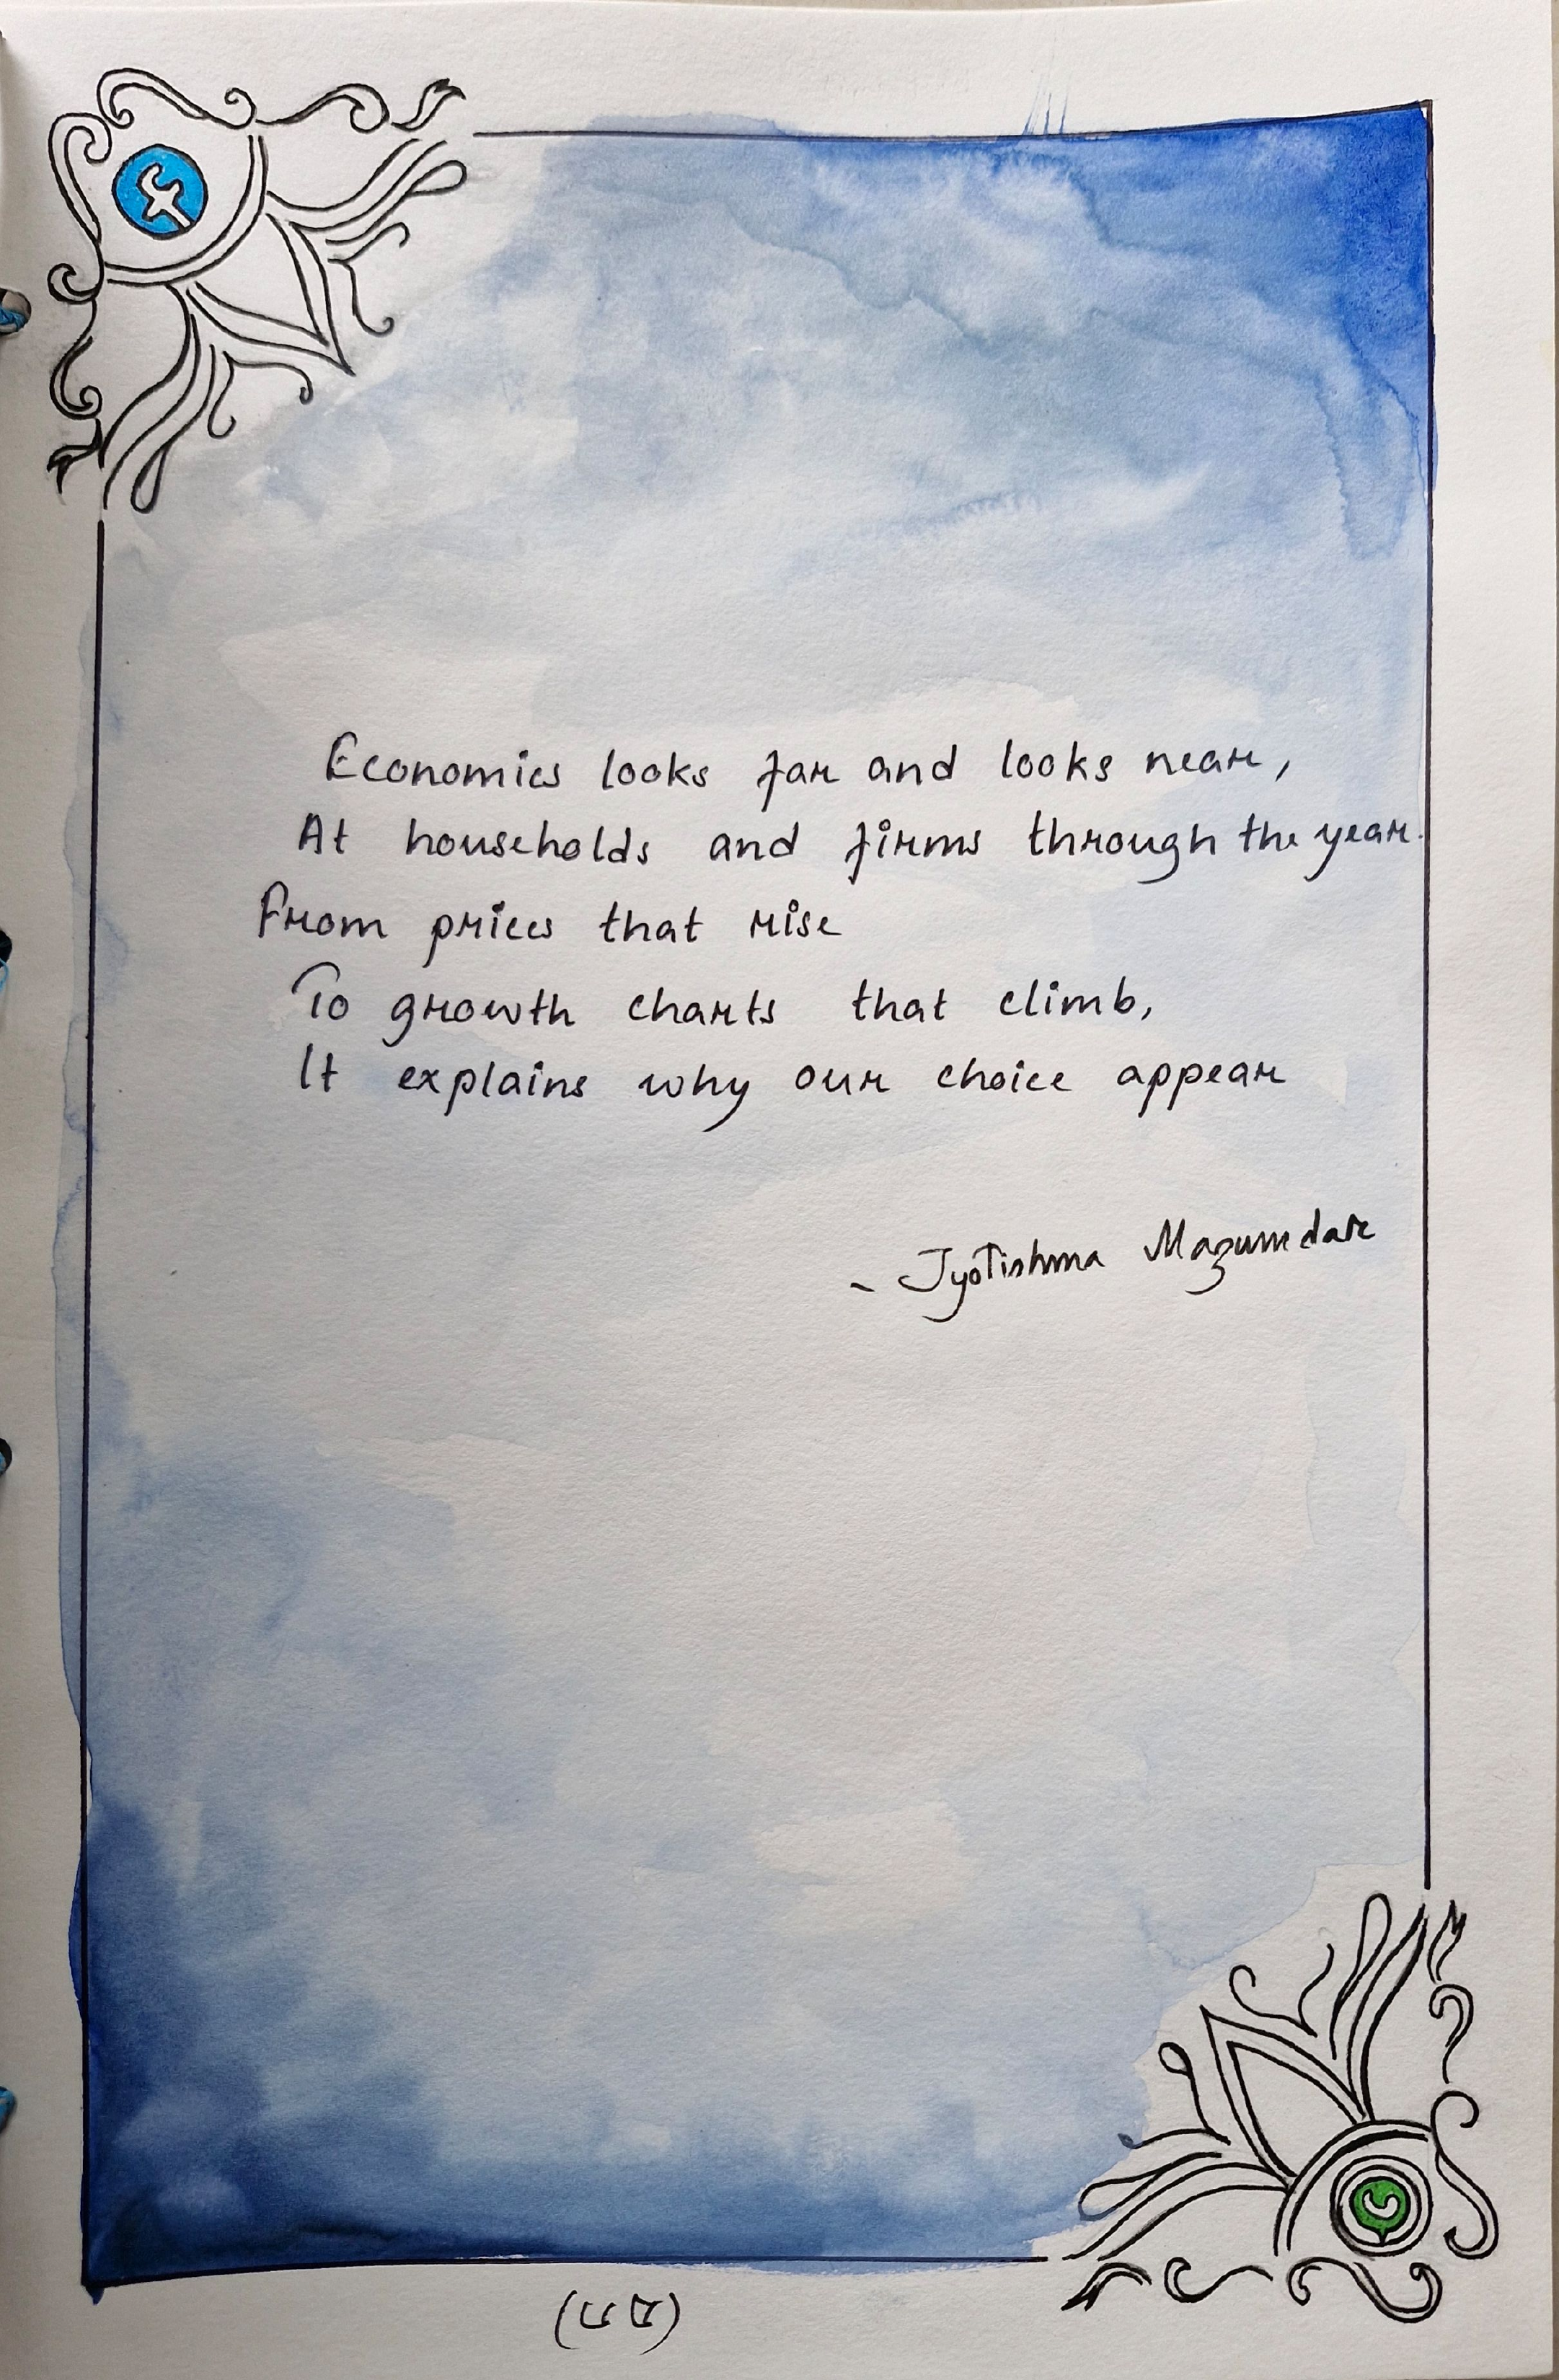 Economics looks far and looks near,
At households and firms through the year.
From prices that rise
To growth charts that climb,
It explains why our choice appear
- Jyotishma Mazumdar